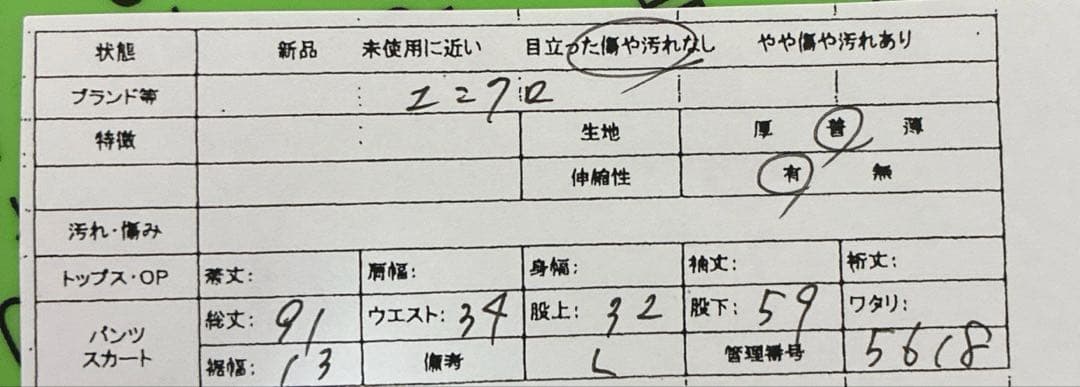 状態 新品 未使用に近い 目立った傷や汚れなし やや傷や汚れあり
ブランド等 ユニクロ
特徴 生地 厚 普 薄
伸縮性 有 無
汚れ・傷み
トップス・OP 着丈: 肩幅: 身幅: 袖丈: 裄丈:
パンツ スカート 総丈: 91 ウエスト: 34 股上: 32 股下: 59 ワタリ:
裾幅: 13 備考 L 管理番号 5618